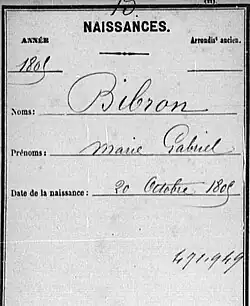 NAISSANCES.
ANNÉE
Arrondist ancien.
1805
Noms: Bibron
Prénoms: Marie Gabriel
Date de la naissance: 20 Octobre 1805
471.949